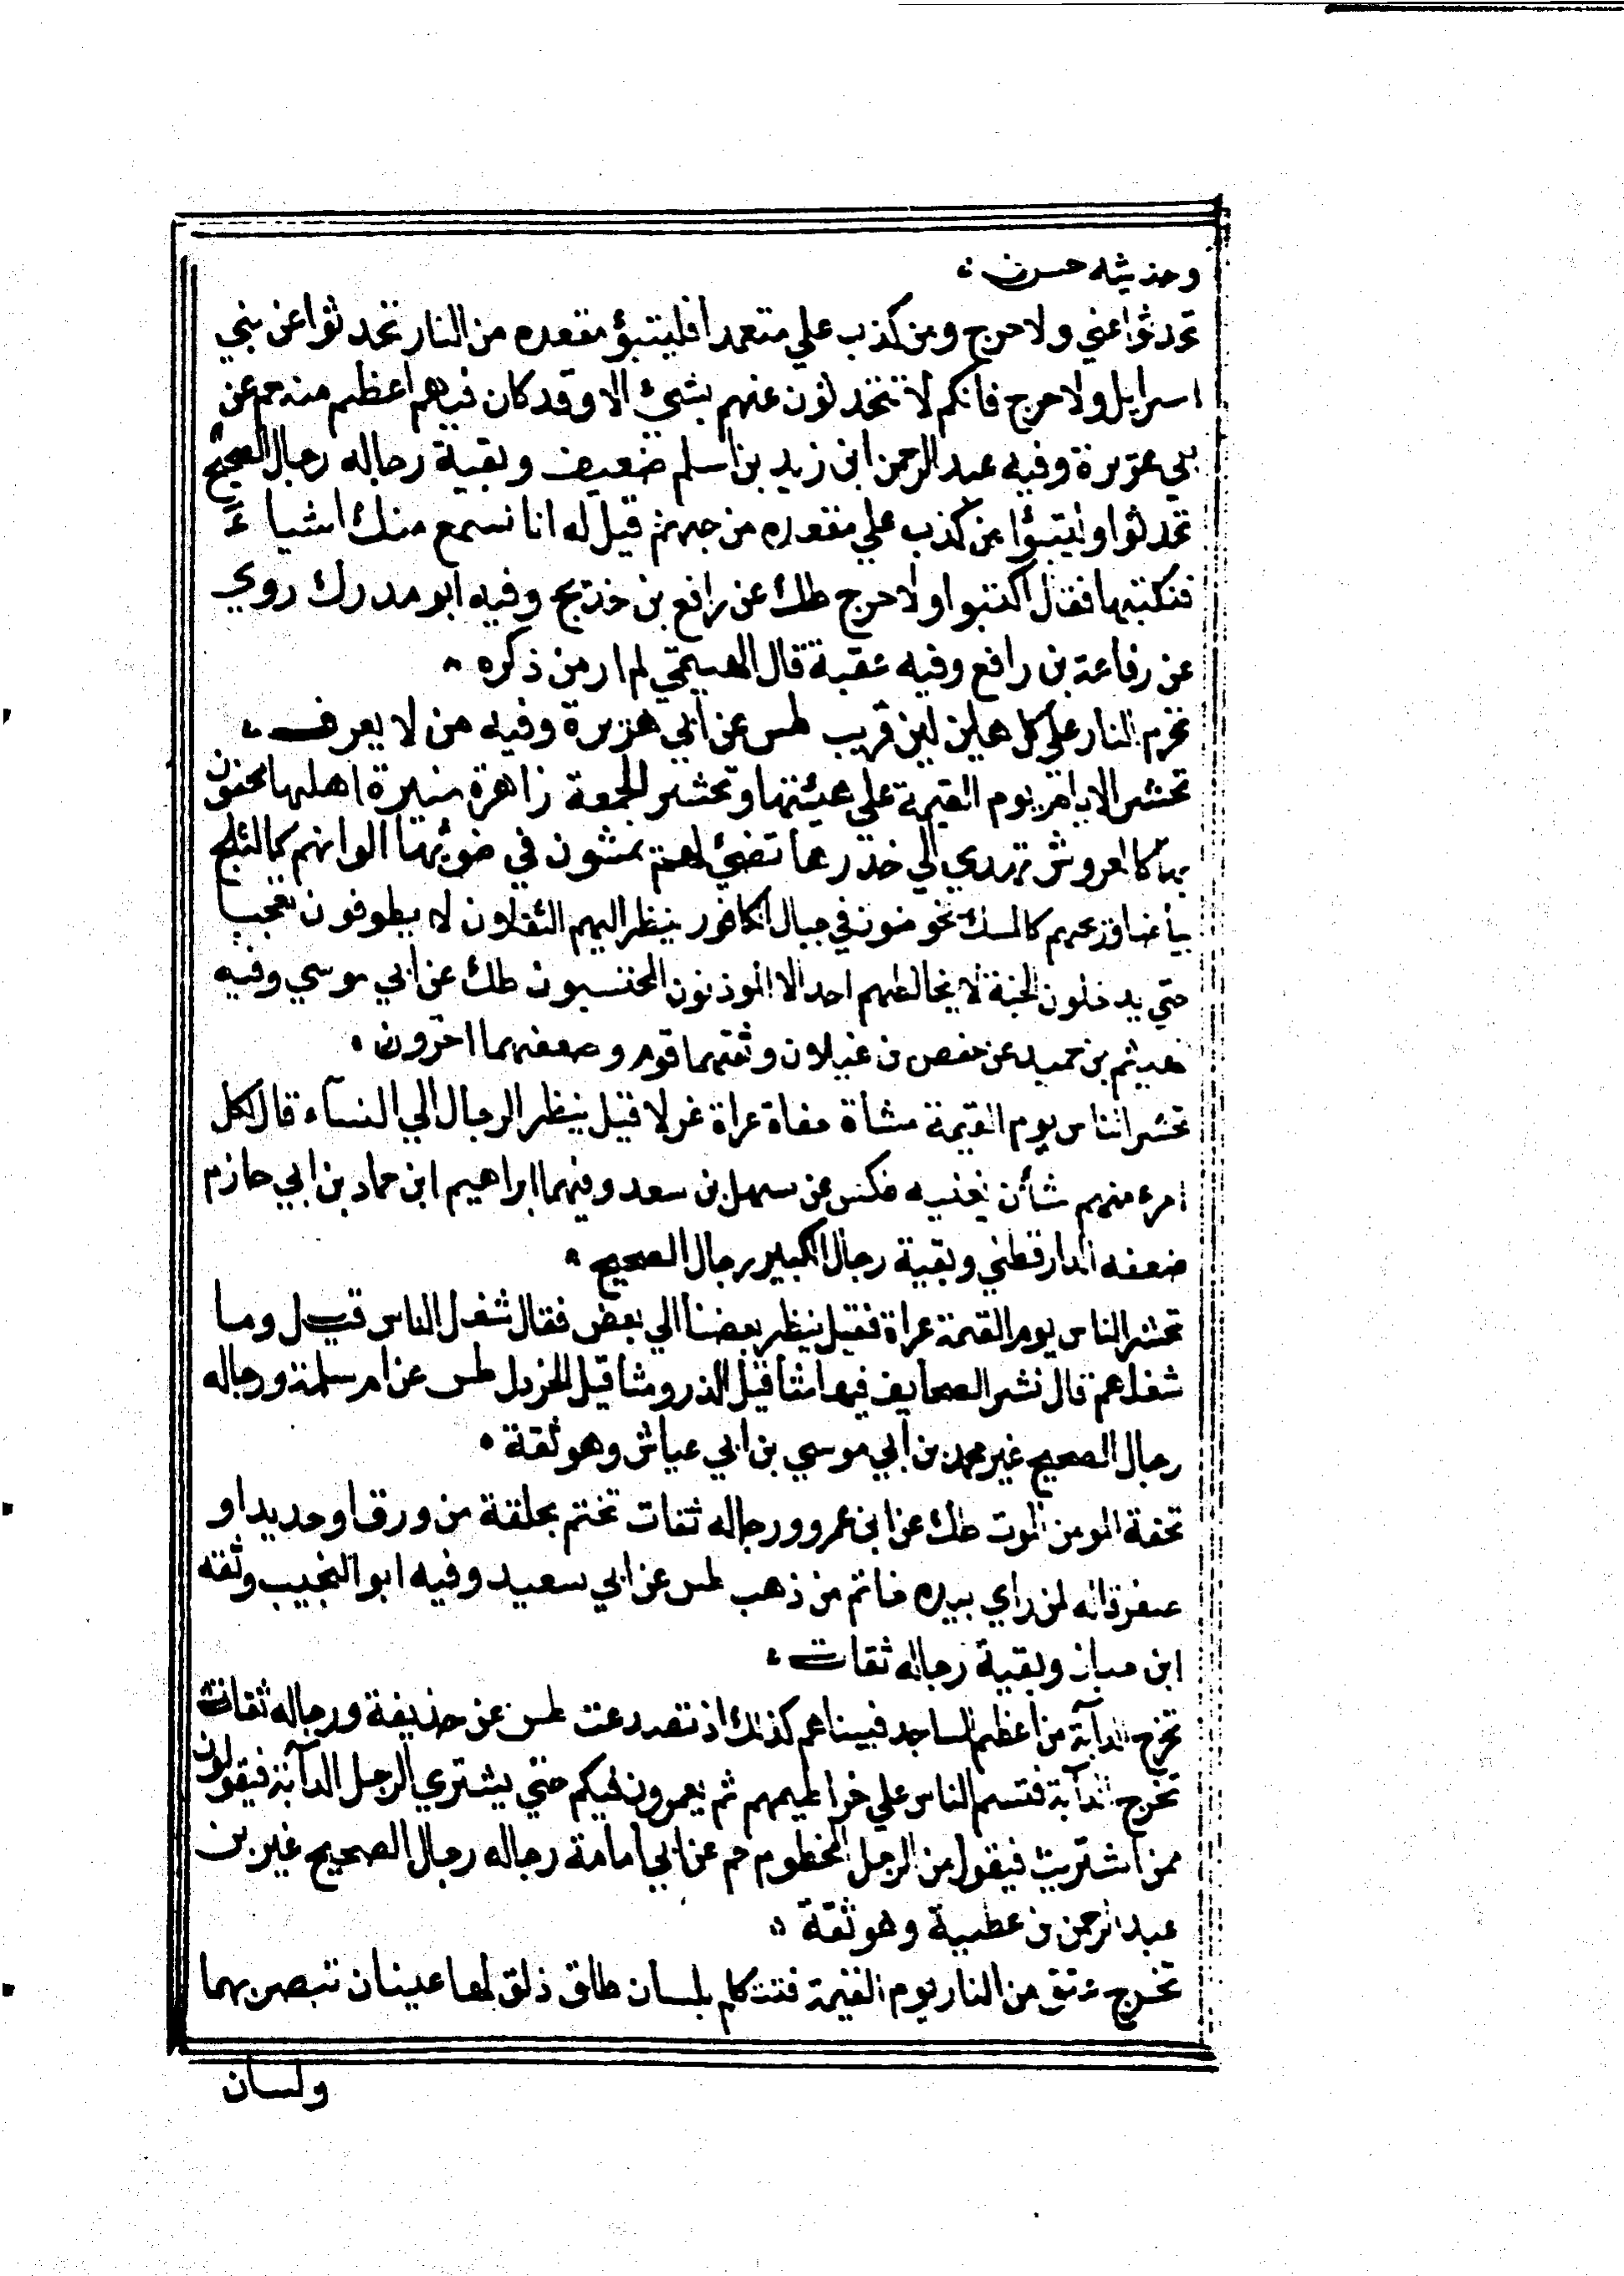 وحديثه حسن
تحدثوا عني ولا حرج ومن كذب علي متعمدا فليتبؤ مقعده من النار تحدثوا عن بني
اسرايل ولا حرج فانكم لا تتحدثون عنهم بشيء الا وقد كان فيهم اعظم منه حم عن
ابي هريرة وفيه عبد الرحمن ابن زيد بن اسلم ضعيف وبقية رجاله رجال الصحيح
تحدثوا وليتبؤا من كذب علي مقعده من جهنم قيل له انا نسمع منك اشياء
فنكتبها فقال اكتبوا ولا حرج طك عن رافع بن خديج وفيه ابو مدرك روي
عن رفاعة بن رافع وفيه عقبة قال الهيتمي لم ار من ذكره
تحرم النار علي كل هين لين قريب طس عن ابي هريرة وفيه من لا يعرف
تحشر الايام يوم القيمة علي هيئتها وتحشر الجمعة زاهرة منيرة اهلها يحفون
بها كالعروش تهدي الي خدرها تضيئ لهم يمشون في ضوئها الوانهم كالثلج
بياضا وريحهم كالمسك يخوضون في جبال الكافور ينظر اليهم الثقلان لا يطوفون تعجبا
حتي يدخلون الجنة لا يخالطهم احد الا الموذنون المحتسبون طك عن ابي موسي وفيه
هيثم بن حميد عن حفص بن غيلان وثقهما قوم وضعفهما اخرون
تحشر الناس يوم القيمة مشاة حفاة عراة غرلا قيل ينظر الرجال الي النسآء قال لكل
امرء منهم شأن يغنيه طكس عن سهل بن سعد وفيهما ابراهيم ابن حماد بن ابي حازم
ضعفه الدارقطني وبقية رجال الكبير رجال الصحيح
تحشر الناس يوم القيمة عراة فقيل ينظر بعضنا الي بعض فقال شغل الناس قيل وما
شغلهم قال نشر الصحايف فيها مثاقيل الذر ومثاقيل الخردل طس عن ام سلمة ورجاله
رجال الصحيح غير محمد بن ابي موسي بن ابي عياش وهو ثقة
تحفة المومن الموت طك عن ابن عمرو ورجاله ثقات تختم بحلقة من ورق او حديد او
صفر قاله لمن راي بيده خاتم من ذهب طس عن ابي سعيد وفيه ابو النجيب وثقه
ابن حبان وبقية رجاله ثقات
تخرج الدآبة من اعظم المساجد فبينا هم كذلك اذ تصدعت طس عن حذيفة ورجاله ثقات
تخرج الدآبة فتسم الناس علي خراطيمهم ثم يعمرون فيكم حتي يشتري الرجل الدآبة فيقولون
ممن اشتريت فيقول من الرجل المخطوم حم عن ابي امامة رجاله رجال الصحيح غير بن
عبد الرحمن بن عطية وهو ثقة
تخرج عنق من النار يوم القيمة فتتكلم بلسان طلق ذلق لها عينان تبصر بهما
ولسان